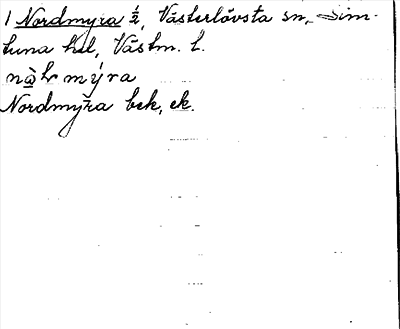 1 Nordmyra ½, Västerlövsta sn, Sim-
tuna hd, Västm. l.
nò̤ℎ mýra
Nordmÿra bek, ek.